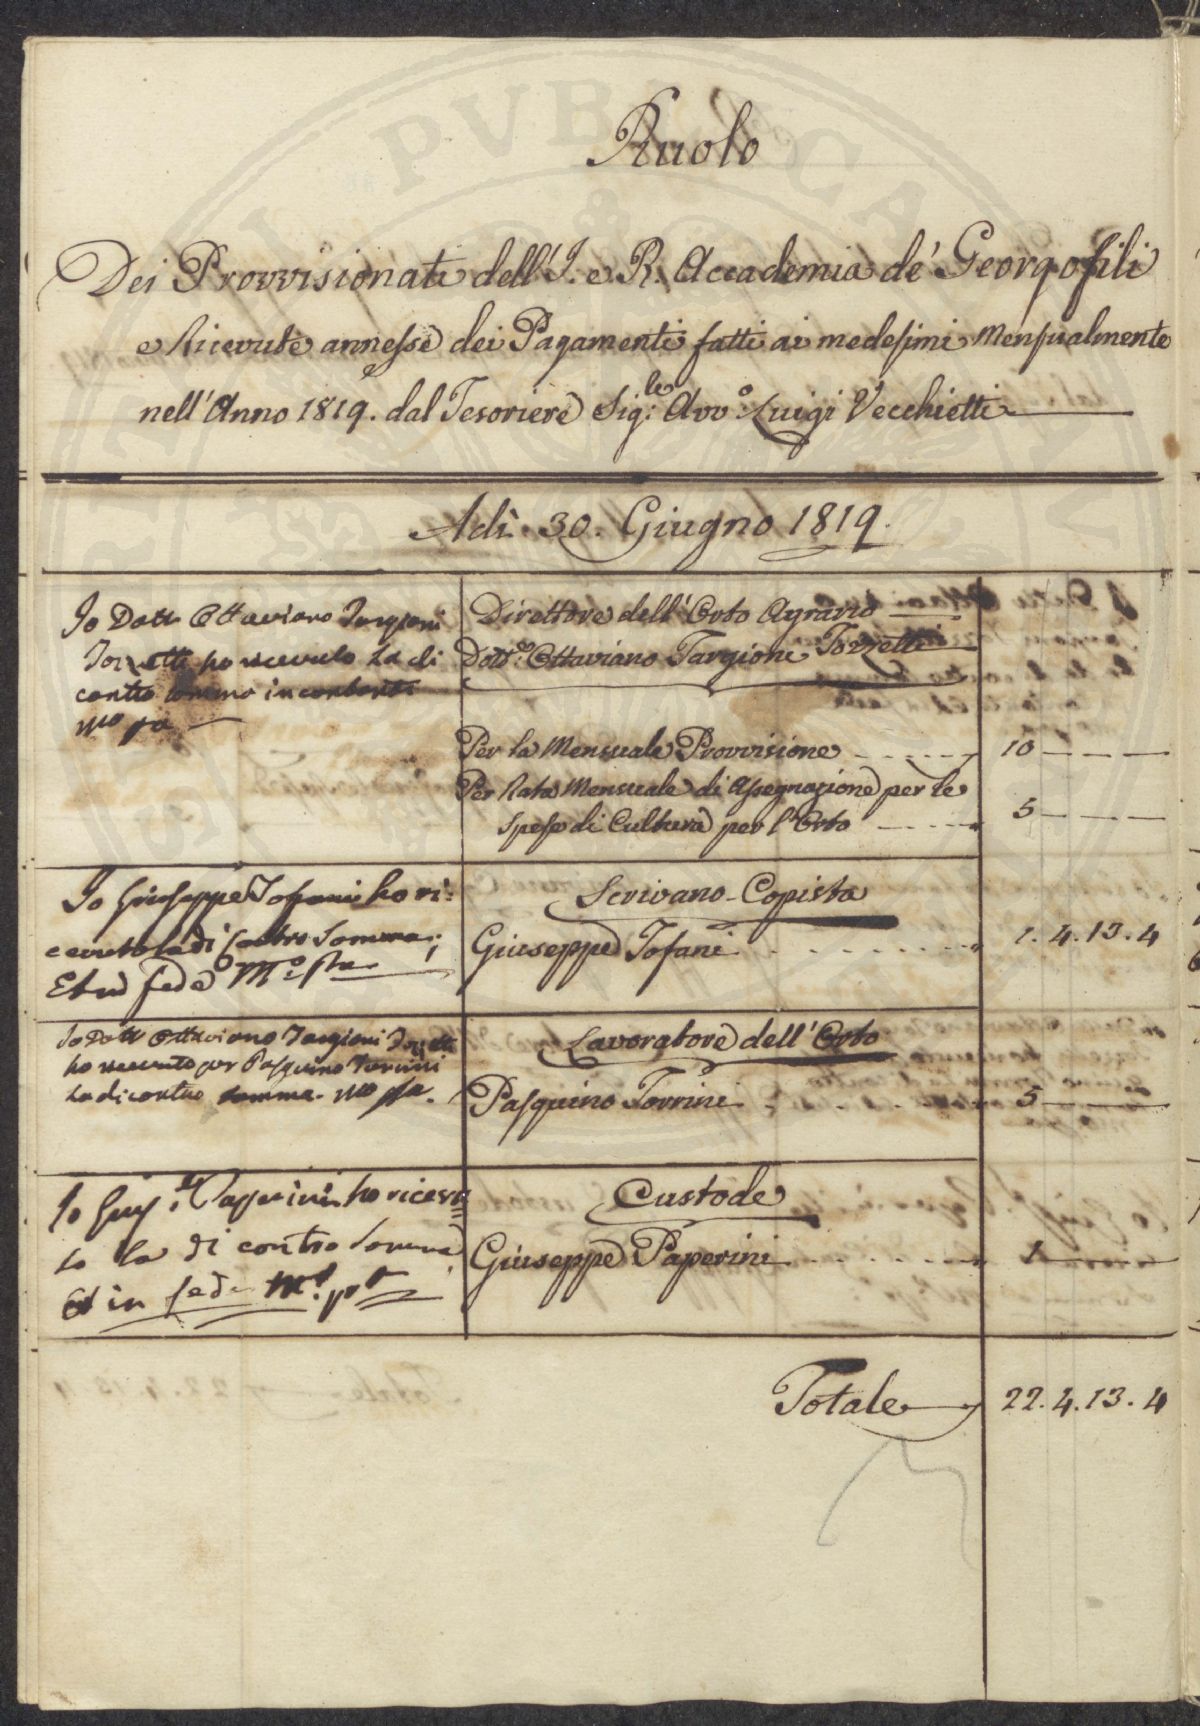 Ruolo
Dei Provvisionati dell'I. e R. Accademia de' Georgofili
e Ricevute annesse dei Pagamenti fatti ai medesimi Mensualmente
nell'Anno 1819. dal Tesoriere Sig.le Avv.o Luigi Vecchietti
Adì 30. Giugno 1819.
Io Dott. Ottaviano Targioni
Tozzetti ho ricevuto la di
contro somma in contanti
mo pa
Direttore dell'Orto Agrario
Dott.e Ottaviano Targioni Tozzetti
Per la Mensuale Provvisione 10
Per Rata Mensuale di Assegnazione per le
Spese di Cultura per l'Orto 5
Io Giuseppe Tofani ho ri-
cevuto la di contro Somma;
Et in fede
Scrivano-Copista
Giuseppe Tofani 1. 4. 13. 4
Io Dott Ottaviano Targioni Tozzetti
ho ricevuto per Pasquino Torrini
la di contro somma. mo pa.
Lavoratore dell'Orto
Pasquino Torrini 5
Io Gius.e Paperini ho ricevu
to la di contro Somma
Et in fede
Custode
Giuseppe Paperini 1
Totale 22. 4. 13. 4